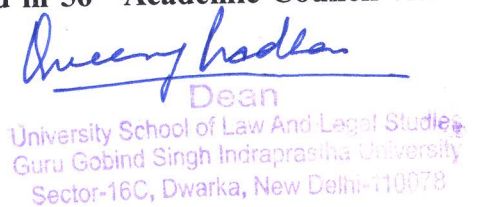 d in 36 Academic Council
Queeny Pradhan
Dean
University School of Law And Legal Studies
Guru Gobind Singh Indraprastha University
Sector-16C, Dwarka, New Delhi-110078